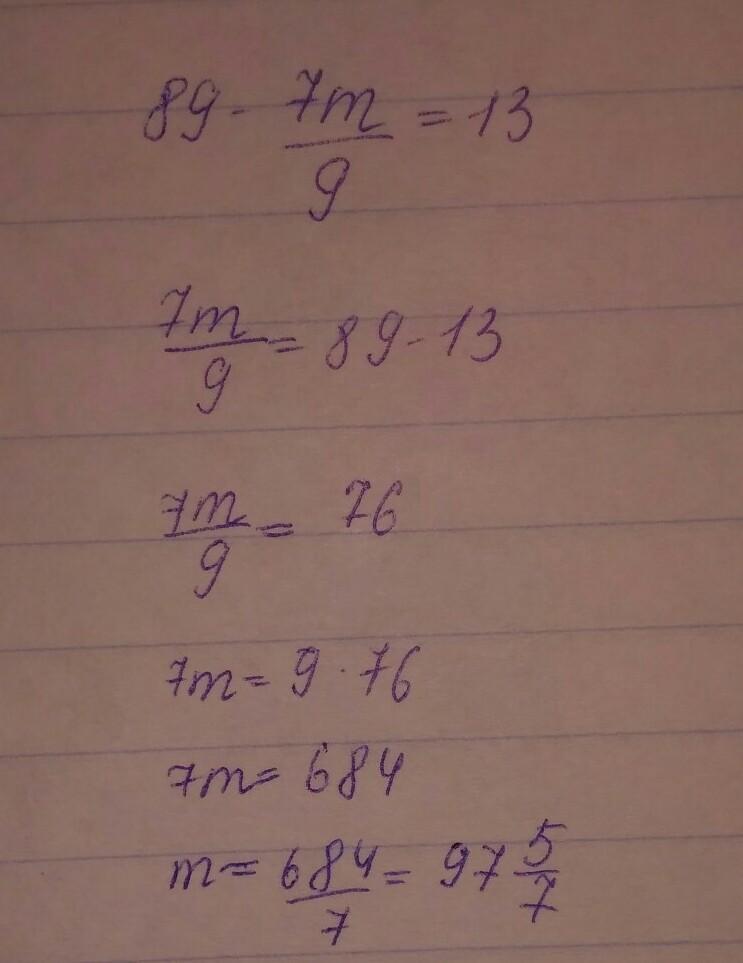 89 - 7m/9 = 13
7m/9 = 89 - 13
7m/9 = 76
7m = 9 · 76
7m = 684
m = 684/7 = 97 5/7